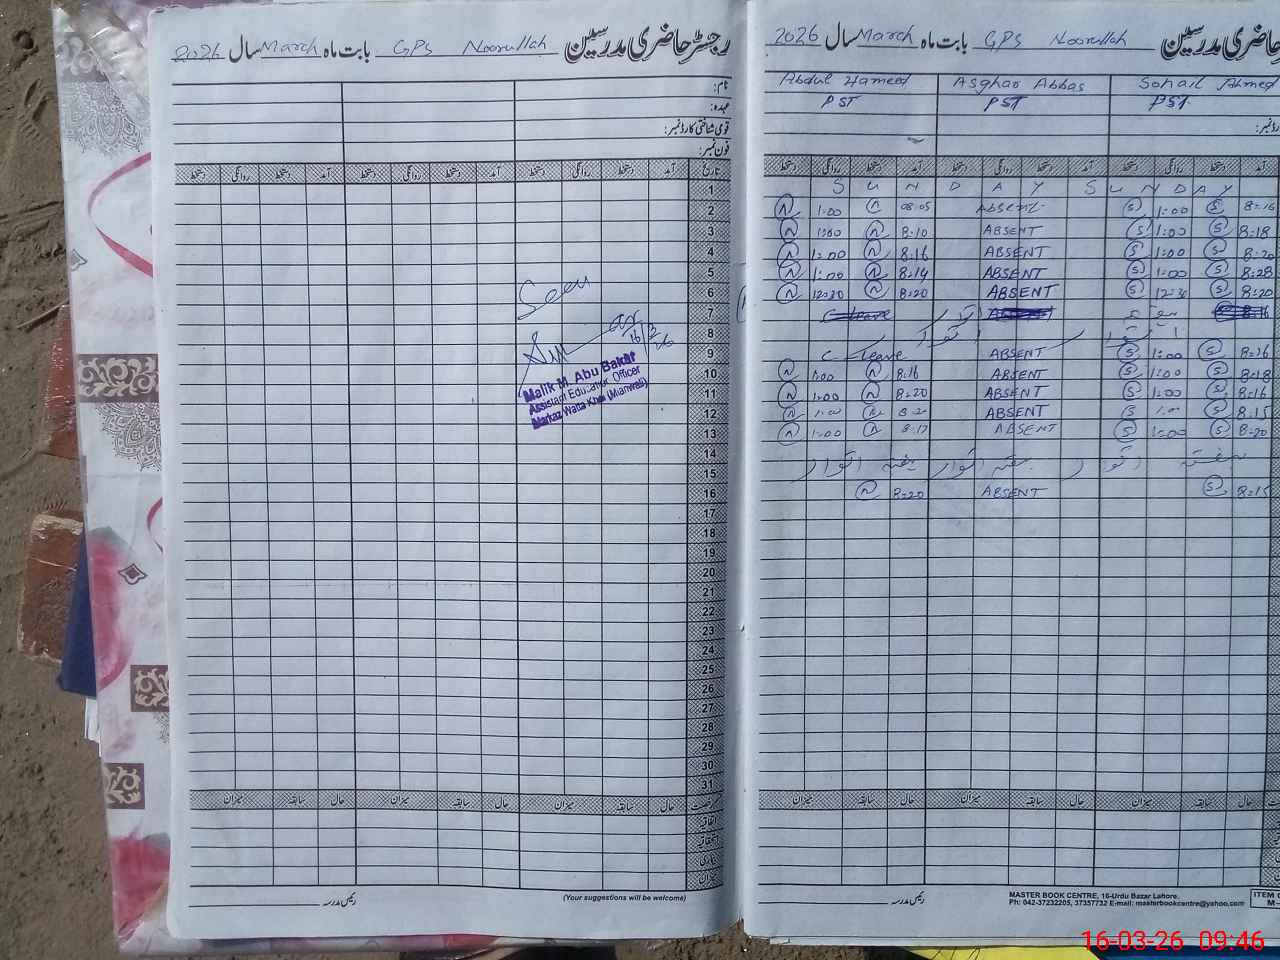 رجسٹر حاضری مدرسین GPS Noorullah بابت ماہ March سال 2026
نام:
عہدہ:
قومی شناختی کارڈ نمبر:
فون نمبر:
تاریخ آمد دستخط روانگی دستخط آمد دستخط روانگی دستخط آمد دستخط روانگی دستخط
1
2
3
4
5
6
7
8
9
10
11
12
13
14
15
16
17
18
19
20
21
22
23
24
25
26
27
28
29
30
31
Seen
16/3/26
Malik M. Abu Bakar
Assistant Education Officer
Markaz Watta Khel (Mianwali)
حال سابقہ میزان حال سابقہ میزان حال سابقہ میزان
رئیس مدرسہ
(Your suggestions will be welcome)
حاضری مدرسین GPS Noorullah بابت ماہ March سال 2026
Abdul Hameed Asghar Abbas Sohail Ahmed
PST PST PST
آمد دستخط روانگی دستخط آمد دستخط روانگی دستخط آمد دستخط روانگی دستخط
SUNDAY SUNDAY
1:00 08:05 ABSENT 1:00 8:16
1:00 8:10 ABSENT 1:00 8:18
1:00 8:16 ABSENT 1:00 8:20
1:00 8:14 ABSENT 1:00 8:28
12:30 8:20 ABSENT 12:30 8:20
C leave ABSENT 1:00 8:16
1:00 8:16 ABSENT 1:00 8:18
1:00 8:20 ABSENT 1:00 8:16
1:00 ABSENT 1:00 8:15
1:00 8:17 ABSENT 1:00 8:20
ہفتہ اتوار ہفتہ اتوار ہفتہ اتوار
8:20 ABSENT 8:15
حال سابقہ میزان حال سابقہ میزان حال سابقہ میزان
رئیس مدرسہ
MASTER BOOK CENTRE, 16-Urdu Bazar Lahore.
Ph: 042-37232205, 37357732 E-mail: masterbookcentre@yahoo.com
16-03-26 09:46